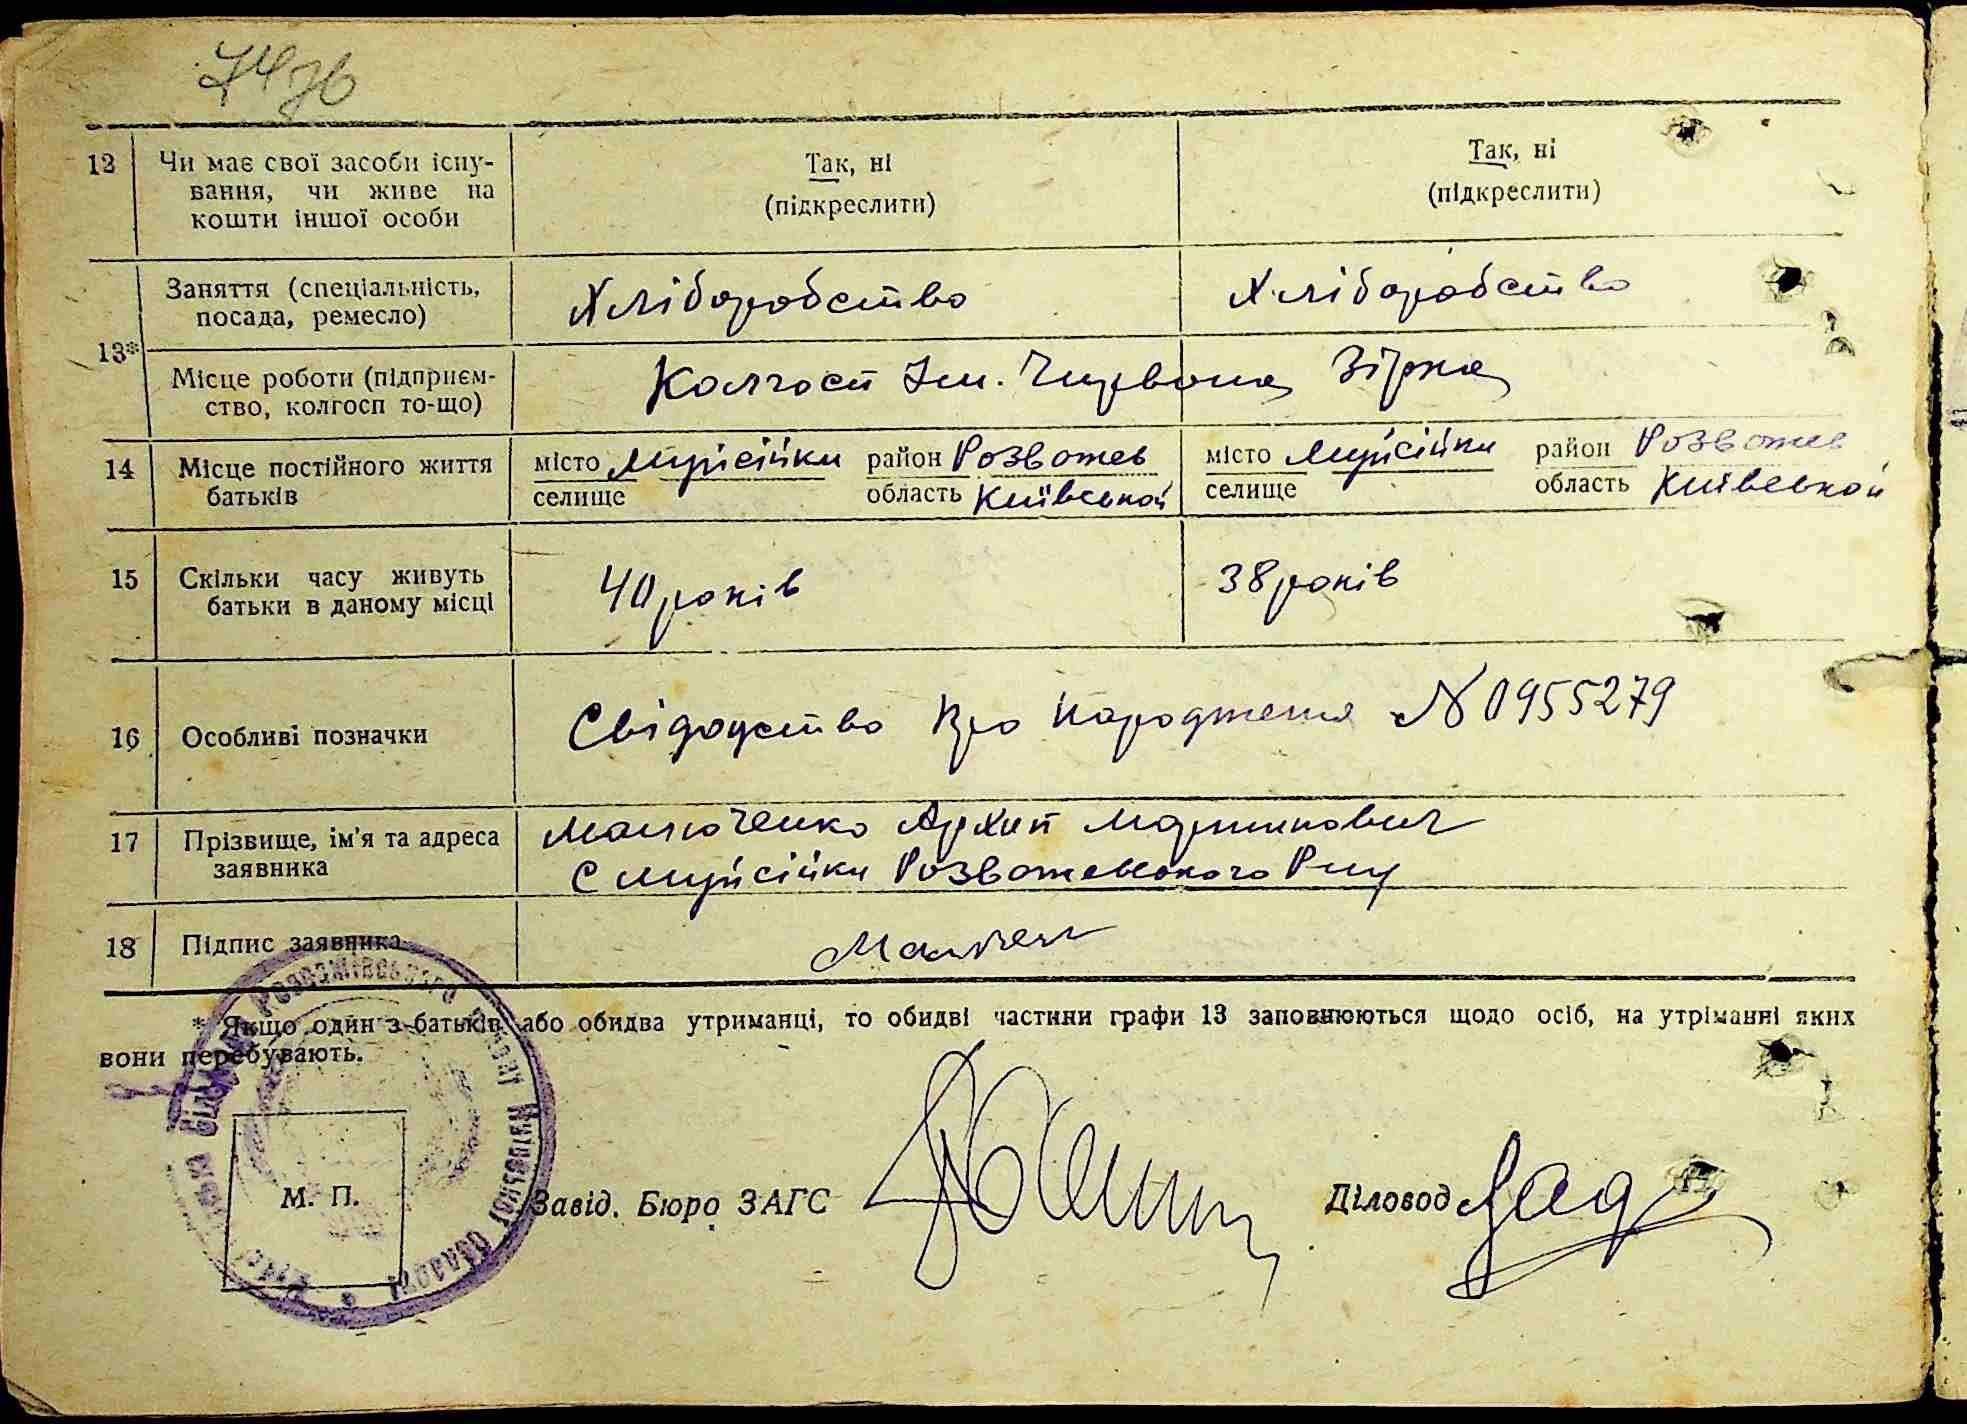 74зв
12 Чи має свої засоби існу-
вання, чи живе на
кошти іншої особи
Так, ні
(підкреслити)
Так, ні
(підкреслити)
13*
Заняття (спеціальність,
посада, ремесло)
Хліборобство
Хліборобство
Місце роботи (підприєм-
ство, колгосп то-що)
Колгосп Ім. Червона Зірка
14 Місце постійного життя
батьків
місто Мусійки район Розважев
селище область Київської
місто Мусійки район Розважев
селище область Київської
15 Скільки часу живуть
батьки в даному місці
40 років
38 років
16 Особливі позначки
Свідоцтво Про Народження № 0955279
17 Прізвище, ім'я та адреса
заявника
Малюченко Архип Мартинович
С Мусійки Розважевського
18 Підпис заявника
* Якщо один з батьків або обидва утриманці, то обидві частини графи 13 заповнюються щодо осіб, на утріманні яких
вони перебувають.
М. П.
Завід. Бюро ЗАГС
Діловод
Розважівського Київської області